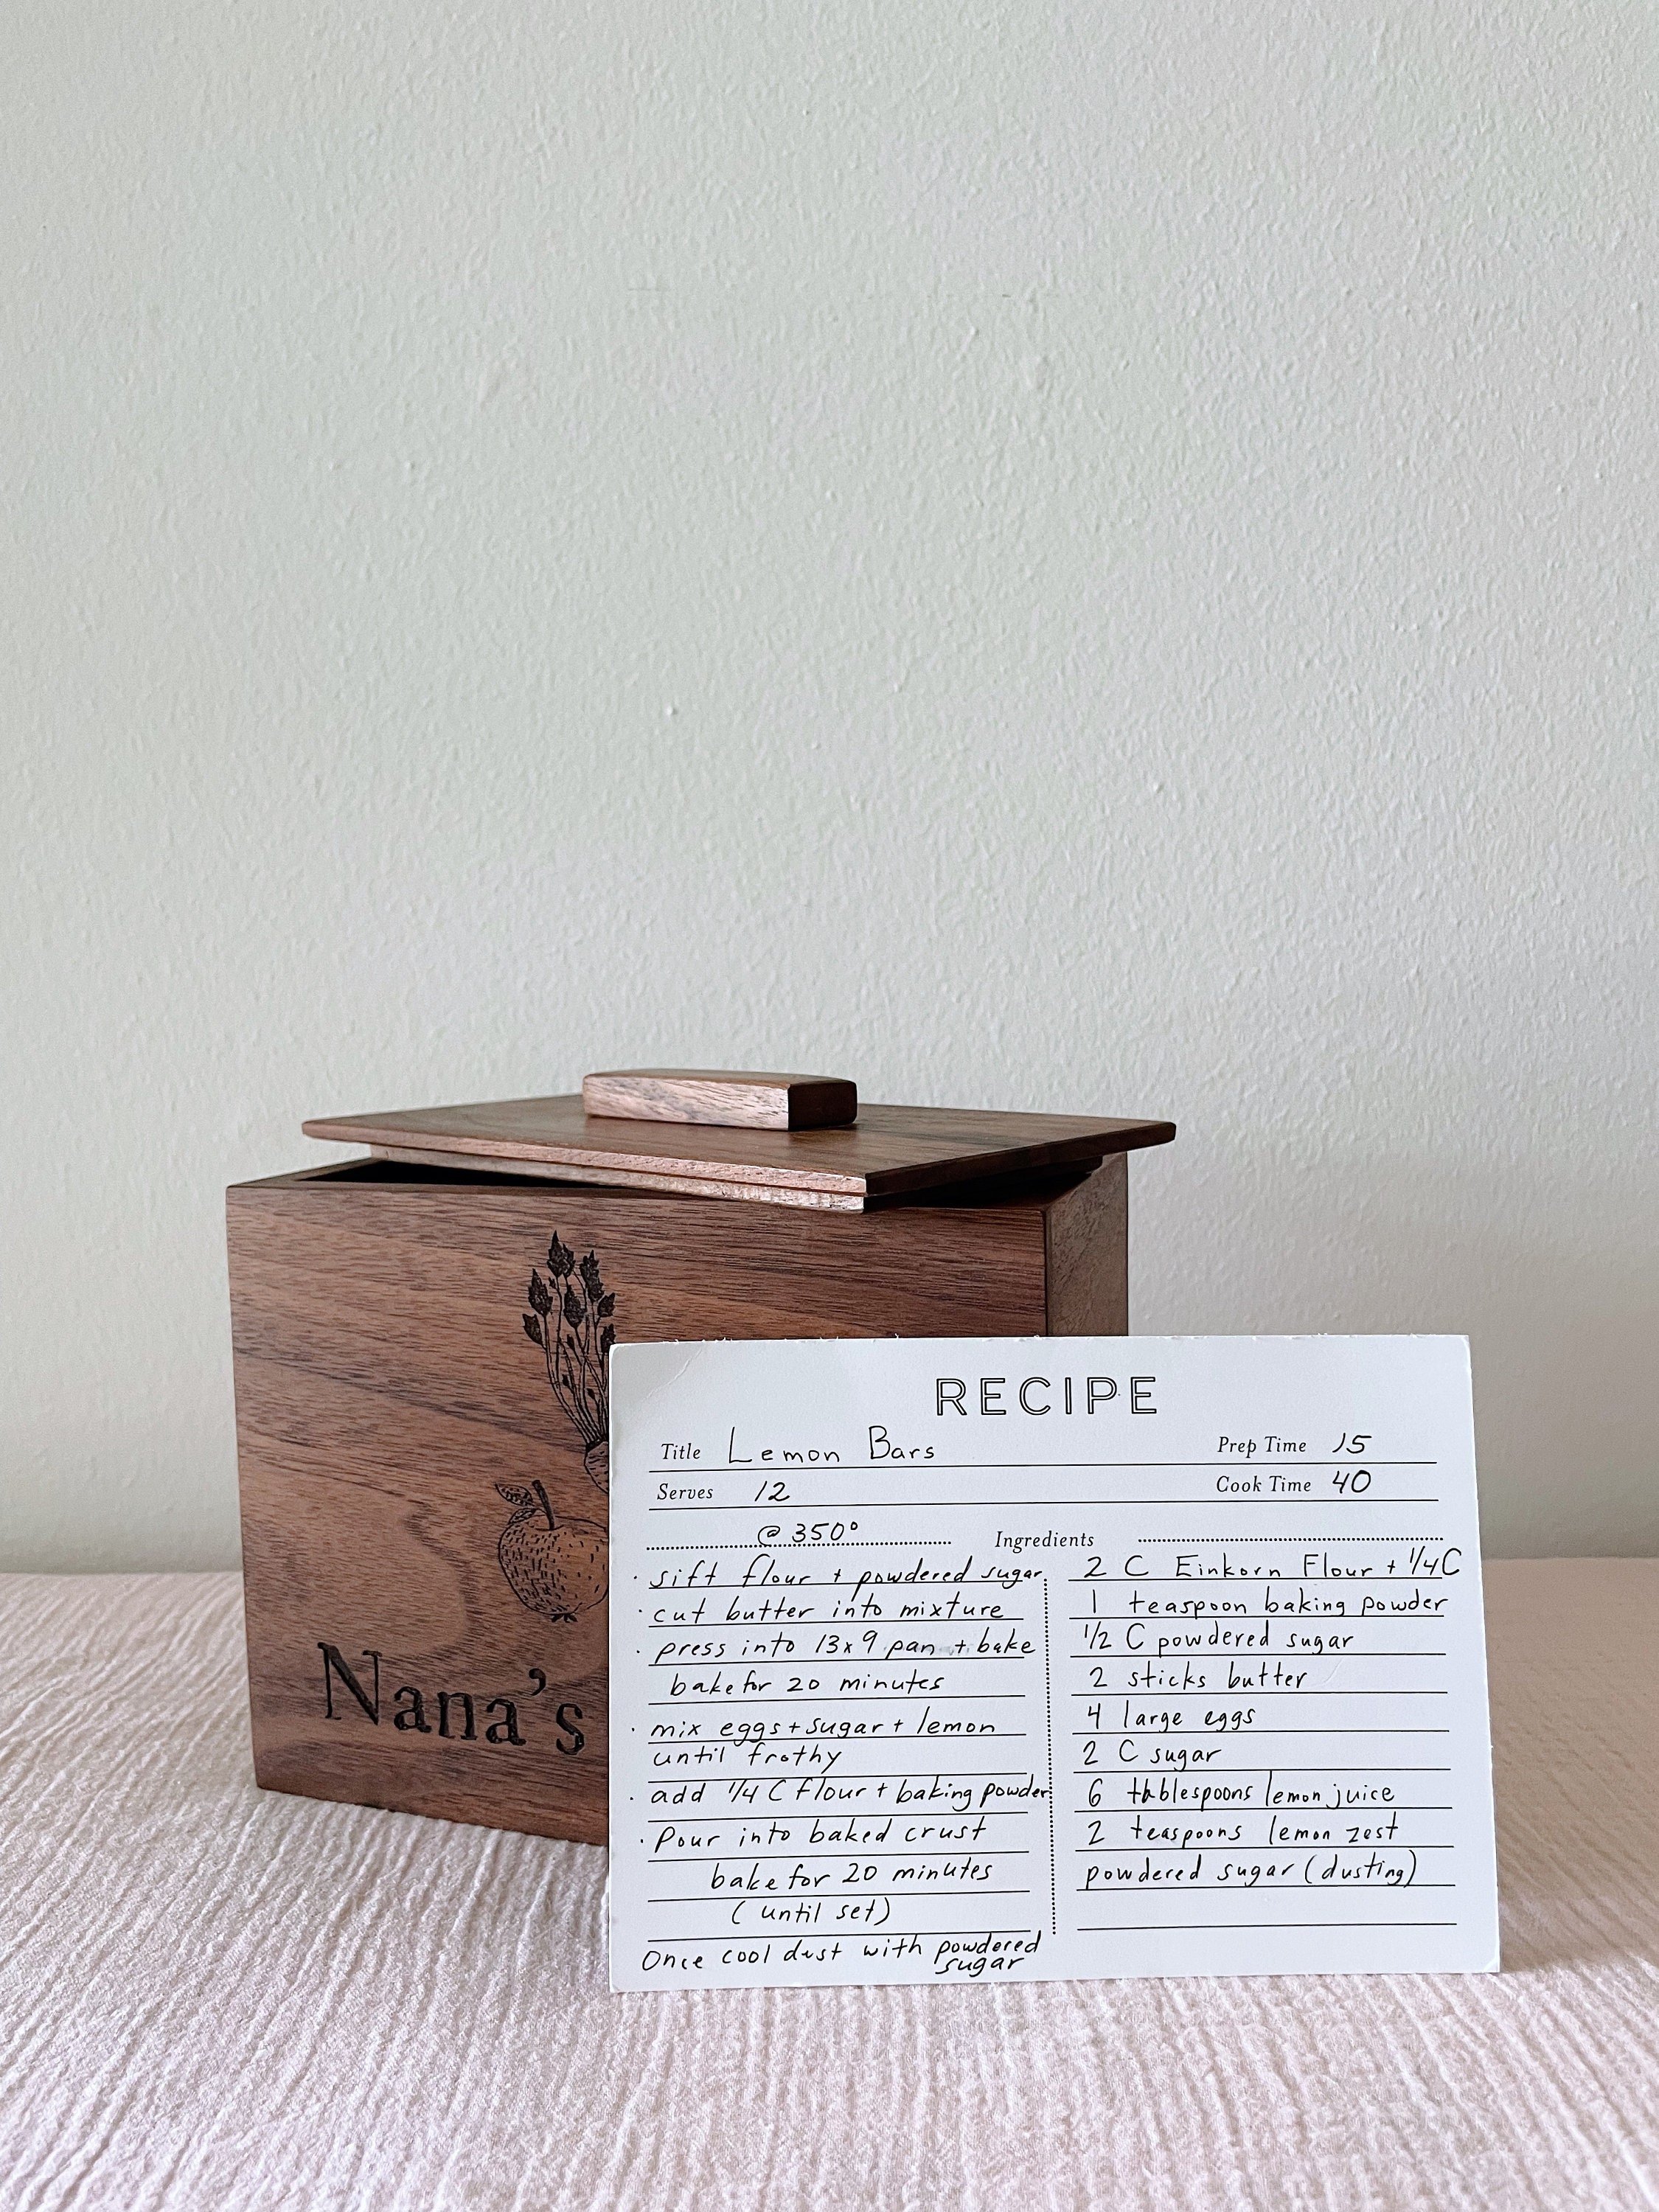 Nana's
RECIPE
Title Lemon Bars Prep Time 15
Serves 12 Cook Time 40
@ 350° Ingredients
· sift flour + powdered sugar
· cut butter into mixture
· press into 13x9 pan + bake
bake for 20 minutes
· mix eggs + sugar + lemon
until frothy
· add 1/4 C flour + baking powder
· Pour into baked crust
bake for 20 minutes
(until set)
Once cool dust with powdered
sugar
2 C Einkorn Flour + 1/4 C
1 teaspoon baking powder
1/2 C powdered sugar
2 sticks butter
4 large eggs
2 C sugar
6 tablespoons lemon juice
2 teaspoons lemon zest
powdered sugar (dusting)